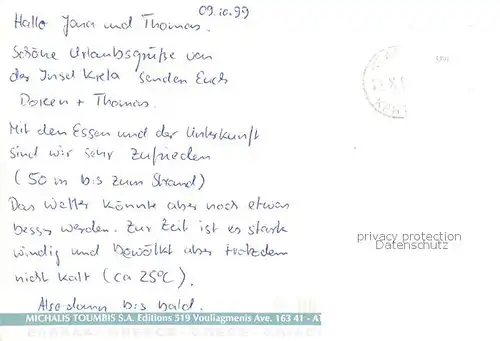 09.10.99
Hallo Jana und Thomas.
Schöne Urlaubsgrüße von
der Insel Kreta senden Euch
Doreen + Thomas.
Mit den Essen und der Unterkunft
sind wir sehr zufrieden
(50 m bis zum Strand)
Das Wetter könnte aber noch etwas
besser werden. Zur Zeit ist es stark
windig und bewölkt aber trotzdem
nicht kalt (ca 25°C).
Also dann bis bald.
privacy protection
Datenschutz
MICHALIS TOUMBIS S.A. Editions 519 Vouliagmenis Ave. 163 41 - AT